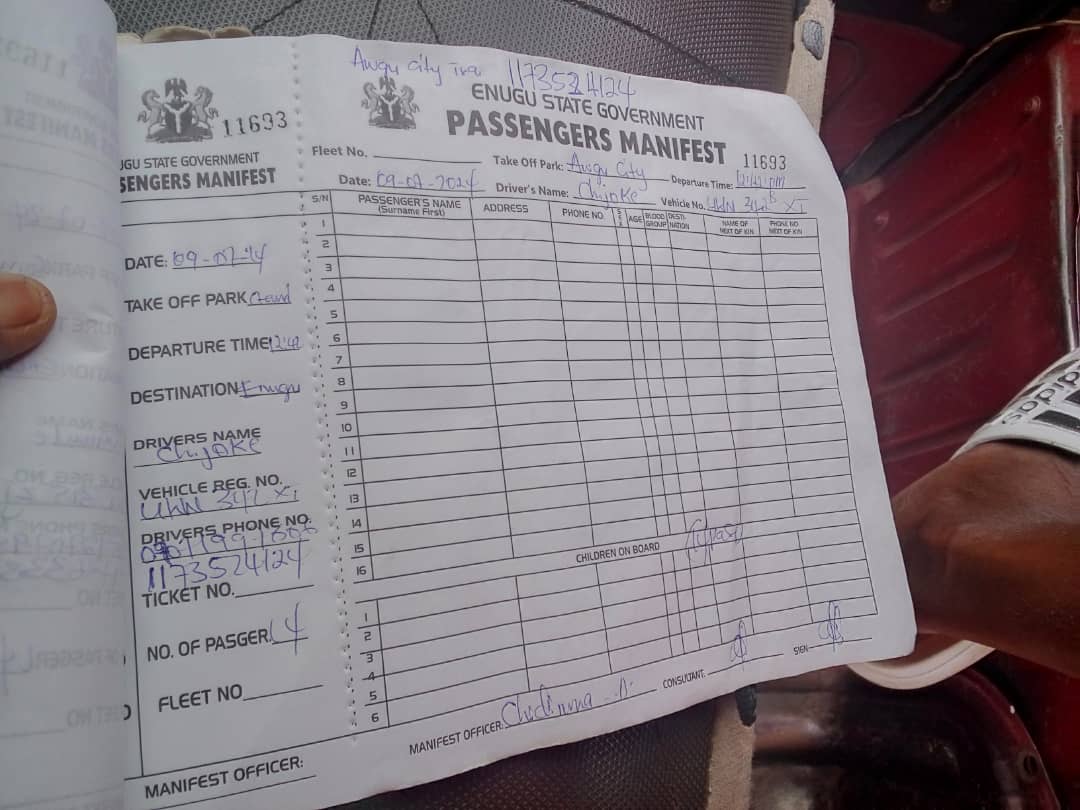 11693
UGU STATE GOVERNMENT
SENGERS MANIFEST
DATE: 09-07-24
TAKE OFF PARK
DEPARTURE TIME 12:42
DESTINATION Enugu
DRIVERS NAME
Chijoke
VEHICLE REG. NO.
UWN 342 XI
DRIVERS PHONE NO.
1173524124
TICKET NO.
NO. OF PASGER. 14
FLEET NO
MANIFEST OFFICER:
Awgu City 1173524124
ENUGU STATE GOVERNMENT
PASSENGERS MANIFEST
11693
Fleet No. Take Off Park: Awgu City Departure Time:
Date: 09-07-2024 Driver's Name: Chijoke Vehicle No. UWN 342 XI
S/N PASSENGER'S NAME (Surname First) ADDRESS PHONE NO. SEX AGE BLOOD GROUP DESTI-NATION NAME OF NEXT OF KIN PHONE NO. NEXT OF KIN
1
2
3
4
5
6
7
8
9
10
11
12
13
14
15
16
CHILDREN ON BOARD
1
2
3
4
5
6
MANIFEST OFFICER: Chidinma .A. CONSULTANT. SIGN
adidas